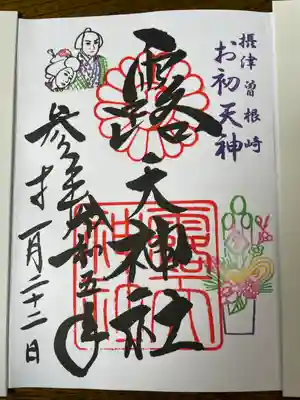 摂津曽根崎
お初天神
露天神社
参拝令和五年
一月二十二日